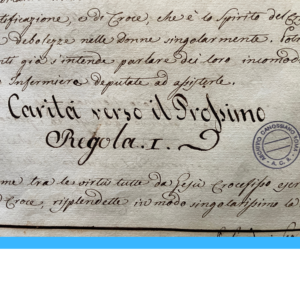 tificazione, o di Croce, che è lo Spirito del
debolezze nelle donne singolarmente.
già s'intende parlare dei loro incomodi
Infermiere deputate ad assisterle.
Carità verso il Prossimo
Regola. I.
me tra le virtù tutte da Gesù Crocefisso
Croce, risplendette in modo singolarissimo la